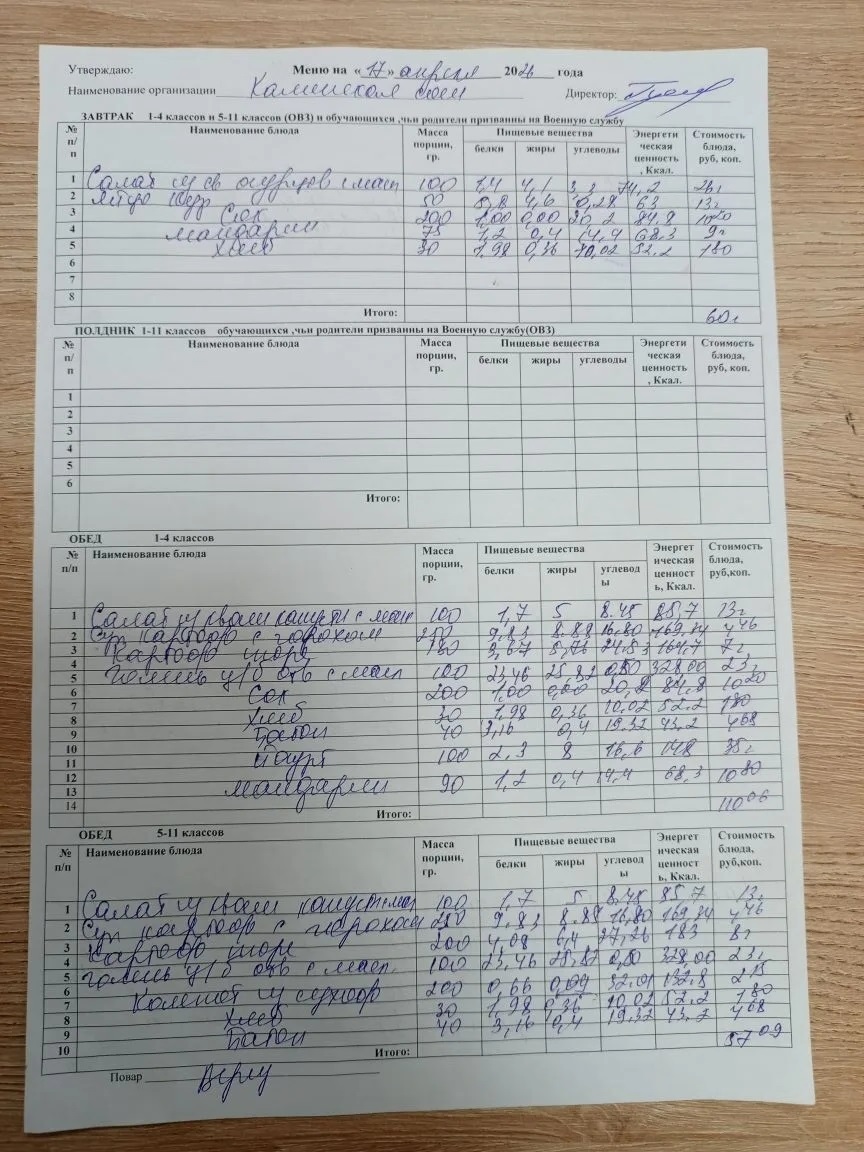 Утверждаю: Меню на «17» апреля 2026 года
Наименование организации Каминская сош Директор:
ЗАВТРАК 1-4 классов и 5-11 классов (ОВЗ) и обучающихся ,чьи родители призванны на Военную службу
№ п/п Наименование блюда Масса порции, гр. Пищевые вещества Энергетическая ценность, Ккал. Стоимость блюда, руб, коп.
белки жиры углеводы
1 Салат из св огурцов с масл 100 1,4 4,1 3,3 74,2 26г
2 яйцо кур 50 5,8 4,6 0,28 63 13г
3 Сок 200 1,00 0,00 20,2 84,8 10 20
4 мандарин 75 1,2 0,4 14,4 68,3 9г
5 хлеб 30 1,98 0,36 10,02 52,2 1 80
6
7
8
Итого: 60г
ПОЛДНИК 1-11 классов обучающихся ,чьи родители призванны на Военную службу(ОВЗ)
№ п/п Наименование блюда Масса порции, гр. Пищевые вещества Энергетическая ценность, Ккал. Стоимость блюда, руб, коп.
белки жиры углеводы
1
2
3
4
5
6
Итого:
ОБЕД 1-4 классов
№ п/п Наименование блюда Масса порции, гр. Пищевые вещества Энергетическая ценность, Ккал. Стоимость блюда, руб,коп.
белки жиры углеводы
1 Салат из кваш капусты с масл 100 1,7 5 8.48 85,7 13г
2 Суп картоф с горохом 250 9,83 8.88 16,80 169,84 4 46
3 Картоф пюре 180 3,67 5,76 24,53 164,7 7г
4
5 голень ц/б отв с масл 100 23,46 25,82 0,80 328,00 23г
6 Сок 200 1,00 0,00 20,2 84,8 10 20
7
8 Хлеб 30 1,98 0,36 10,02 52,2 1 80
9 Батон 40 3,16 0,4 19,32 43,2 4 68
10
11 йогурт 100 2,3 8 16,6 148 35г
12
13 мандарин 90 1,2 0,4 14,4 68,3 10 80
14 Итого: 110 06
ОБЕД 5-11 классов
№ п/п Наименование блюда Масса порции, гр. Пищевые вещества Энергетическая ценность, Ккал. Стоимость блюда, руб,коп.
белки жиры углеводы
1 Салат из кваш капусты масл 100 1,7 5 8,48 85,7 13г
2 Суп картоф с горохом 250 9,83 8.88 16,80 169,84 4 46
3 Картоф пюре 200 4,08 6,4 27,26 183 8г
4
5 голень ц/б отв с масл. 100 23,46 25,82 0,80 328,00 23г
6 Компот из сухофр 200 0,66 0,09 32,01 132,8 2 15
7
8 Хлеб 30 1,98 0,36 10,02 52,2 1 80
9 Батон 40 3,16 0,4 19,32 43,2 4 68
10 Итого: 57 09
Повар